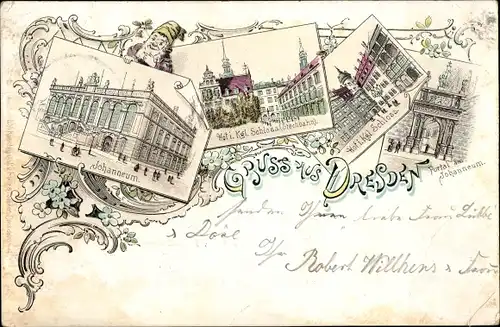 Johanneum.
Hof i. Kgl. Schloss (Stechbahn).
Hof i. Kgl. Schloss.
Portal des Johanneum.
GRUSS AUS DRESDEN
senden Ihnen liebe Frau
Ihr Robert Willhens & Frau